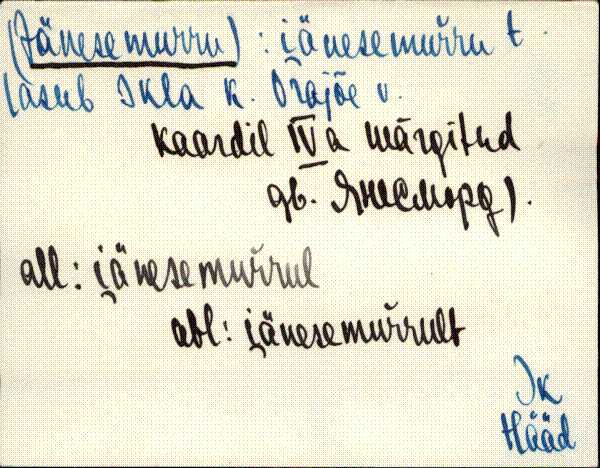 (Jänesemurru) : i̯änesemuřru t.
(asub Ikla k. Orajõe v.
kaardil IV a märgitud
дв. Янесморд).
all: i̯änesemuřrul
abl: i̯änesemuřrult
Ik
Hääd